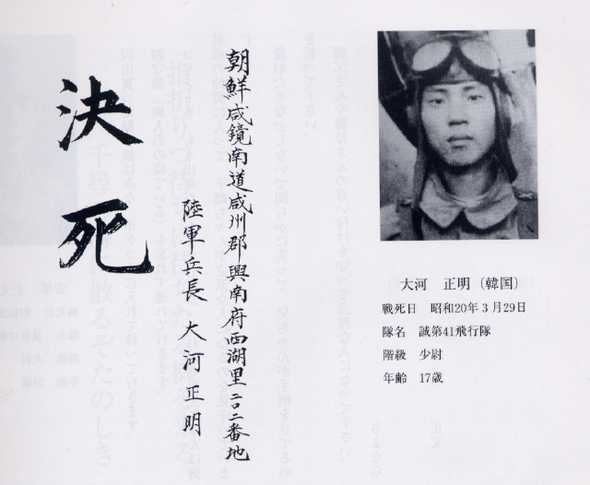 大河　正明（韓国）
戦死日　昭和20年３月29日
隊名　誠第41飛行隊
階級　少尉
年齢　17歳
朝鮮咸鏡南道咸州郡興南府西湖里二〇二番地
陸軍兵長　大河正明
決死